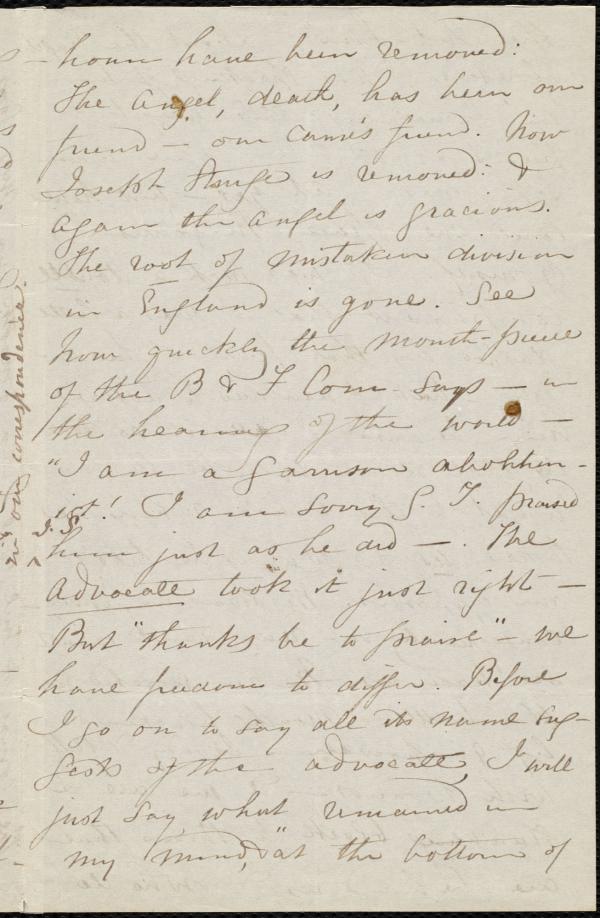 have been removed:
The Angel, death, has been our
friend — our cause's friend. Now
Joseph Sturge is removed: &
again the angel is gracious.
The root of mistaken division
in England is gone. See
how quickly the mouth-piece
of the B & F Com- says — in
the hearing of the world —
"I am a Garrison abolition-
ist! I am sorry G. T. praised
J. S.
^ him just as he did —. The
Advocate took it just right —
But "thanks be to praise" — we
have freedom to differ. Before
I go on to say all its name sug-
gests of the advocate, I will
just say what remained in
my mind, & "at the bottom of
in our correspondence.